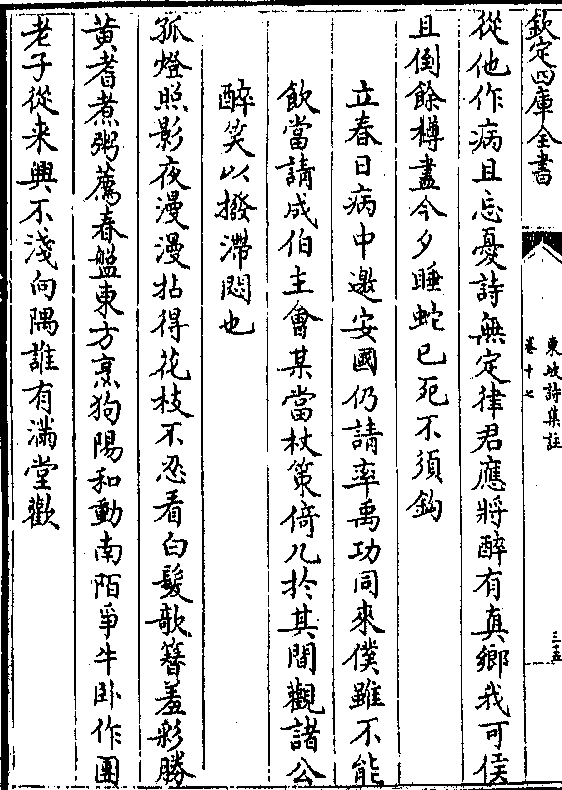 欽定四庫全書
東坡詩集註
卷十七
三十五
從他作病且忘憂詩無定律君應將醉有真鄉我可侯
且倒餘樽盡今夕睡蛇已死不須鈎
立春日病中邀安國仍請率禹功同來僕雖不能
飲當請成伯主會某當杖策倚几於其間觀諸公
醉笑以撥滯悶也
孤燈照影夜漫漫拈得花枝不忍看白髮欹簪羞彩勝
黄耆煮粥薦春盤東方烹狗陽和動南陌爭牛卧作團
老子從来興不淺向隅誰有滿堂歡